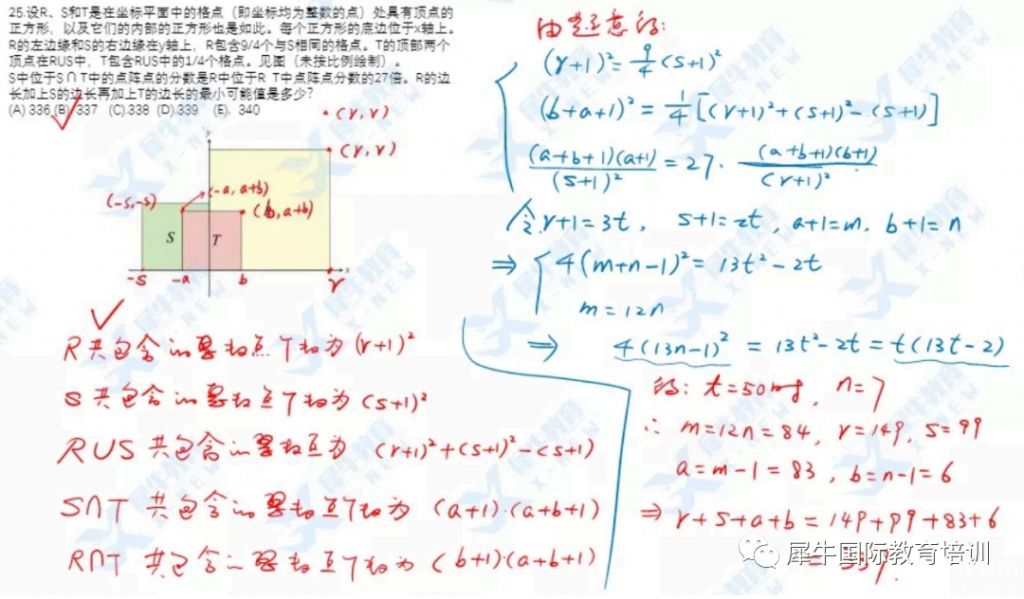 25.设R、S和T是在坐标平面中的格点（即坐标均为整数的点）处具有顶点的
正方形，以及它们的内部的正方形也是如此。每个正方形的底边位于x轴上。
R的左边缘和S的右边缘在y轴上，R包含9/4个与S相同的格点。T的顶部两个
顶点在RUS中，T包含RUS中的1/4个格点。见图（未按比例绘制）。
S中位于S∩T中的点阵点的分数是R中位于R T中点阵点分数的27倍。R的边
长加上S的边长再加上T的边长的最小可能值是多少？
(A) 336 (B) 337 (C).338 (D).339 (E). 340
(r, r)
(r, r)
y
(-a, a+b)
(-s,-s)
(b, a+b)
S
T
x
-s
-a
b
r
R 共包含的整格点个数为 (r+1)²
S 共包含的整格点个数为 (s+1)²
RUS 共包含的整格点为 (r+1)²+(s+1)²-(s+1)
S∩T 共包含的整格点个数为 (a+1)·(a+b+1)
R∩T 共包含的整格点个数为 (b+1)(a+b+1)
由题意得:
(r+1)²=9/4(s+1)²
(b+a+1)²=1/4[(r+1)²+(s+1)²-(s+1)]
(a+b+1)(a+1)/(s+1)²=27·(a+b+1)(b+1)/(r+1)²
令r+1=3t, s+1=2t, a+1=m. b+1=n
⇒ 4(m+n-1)²=13t²-2t
m=12n
⇒ 4(13n-1)²=13t²-2t=t(13t-2)
得: t=50时, n=7
∴ m=12n=84, r=149, s=99
a=m-1=83, b=n-1=6
⇒ r+s+a+b=149+99+83+6
=337.
犀牛国际教育培训
犀牛教育
X-NEW